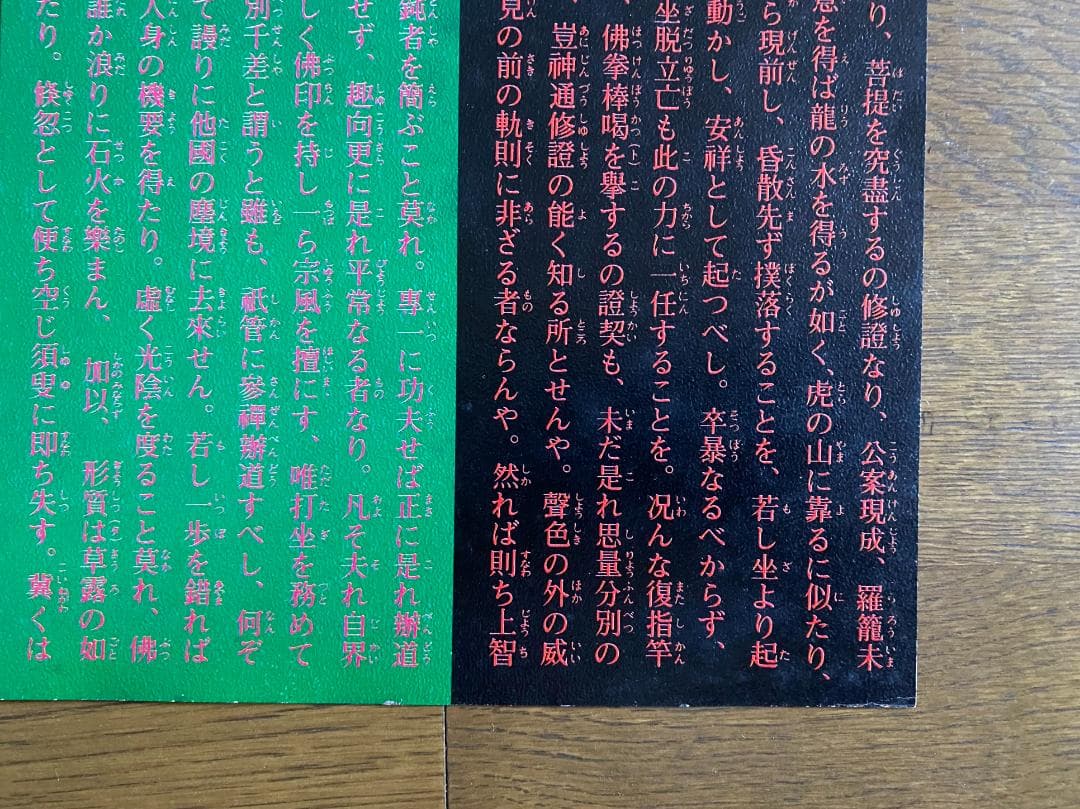 り、菩提を究盡するの修證なり、公案現成、羅籠未
意を得ば龍の水を得るが如く、虎の山に靠るに似たり、
ら現前し、昏散先ず撲落することを、若し坐より起
動かし、安祥として起つべし。卒暴なるべからず、
坐脱立亡も此の力に一任することを。况んな復指竿
、佛拳棒喝を擧するの證契も、未だ是れ思量分別の
、豈神通修證の能く知る所とせんや。聲色の外の威
見の前の軌則に非ざる者ならんや。然れば則ち上智
鈍者を簡ぶこと莫れ。專一に功夫せば正に是れ辦道
せず、趣向更に是れ平常なる者なり。凡そ夫れ自界
しく佛印を持し一ら宗風を擅にす、唯打坐を務めて
別千差と謂うと雖も、祇管に參禪辦道すべし、何ぞ
て謾りに他國の塵境に去來せん。若し一歩を錯れば
人身の機要を得たり。虚く光陰を度ること莫れ、佛
誰か浪りに石火を樂まん、加以、形質は草露の如
たり。倐忽として便ち空じ須臾に即ち失す。冀くは